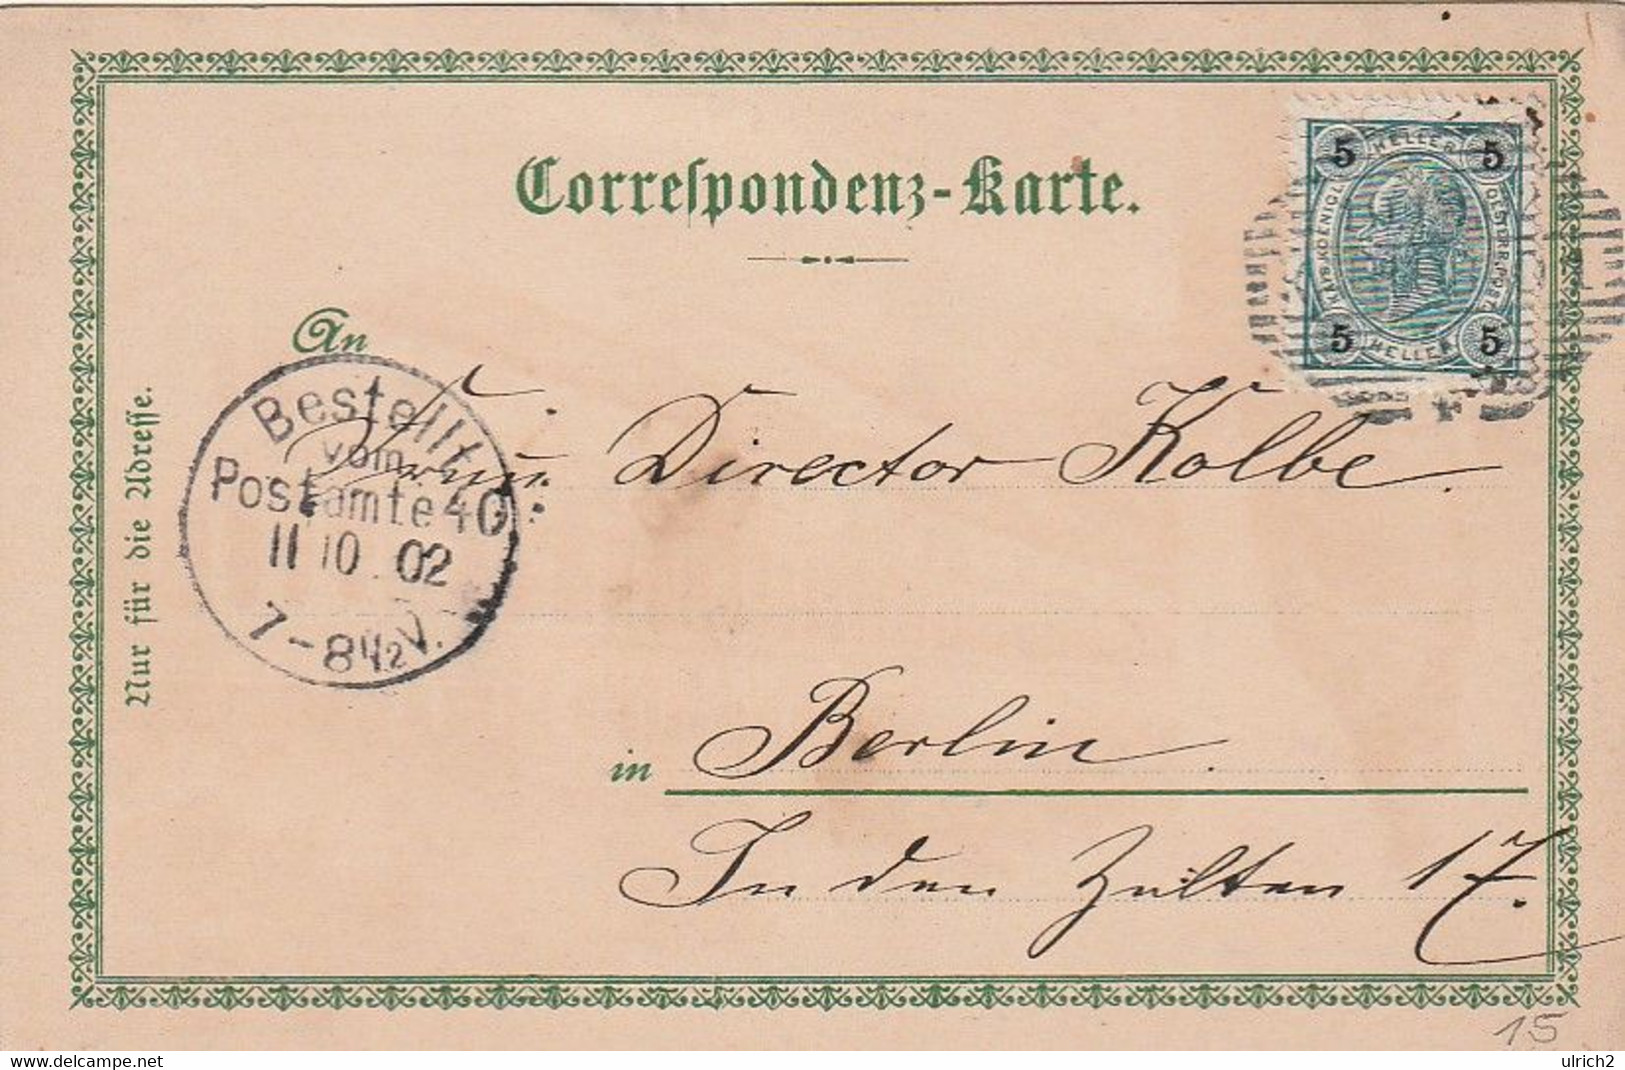 Correspondenz-Karte.
5 HELLER 5
KAIS. KOENIGL. OESTERR. POST.
5 HELLER 5
An
Frau Director Kolbe.
Bestellt
vom
Postamte 40
11 10. 02
7-8½V.
Nur für die Adresse.
in Berlin.
In den Zelten 17.
15
www.delcampe.net
ulrich2